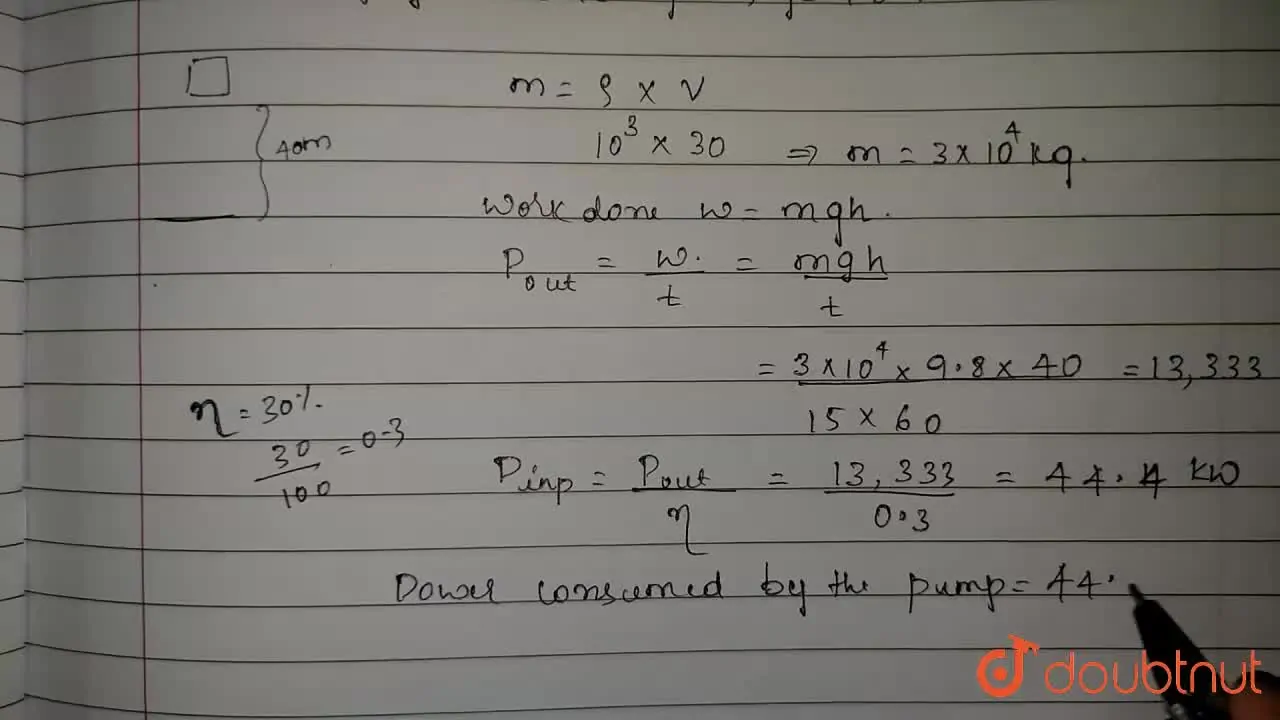 m = ρ x V
40m
10³ x 30 ⇒ m = 3 x 10⁴ kg.
Work done w = mgh.
P out = w. / t = mgh / t
= 3 x 10⁴ x 9.8 x 40 / 15 x 60 = 13,333
η = 30%.
30 / 100 = 0.3
Pinp = Pout / η = 13,333 / 0.3 = 44.4 KW
Power consumed by the pump = 44.
doubtnut